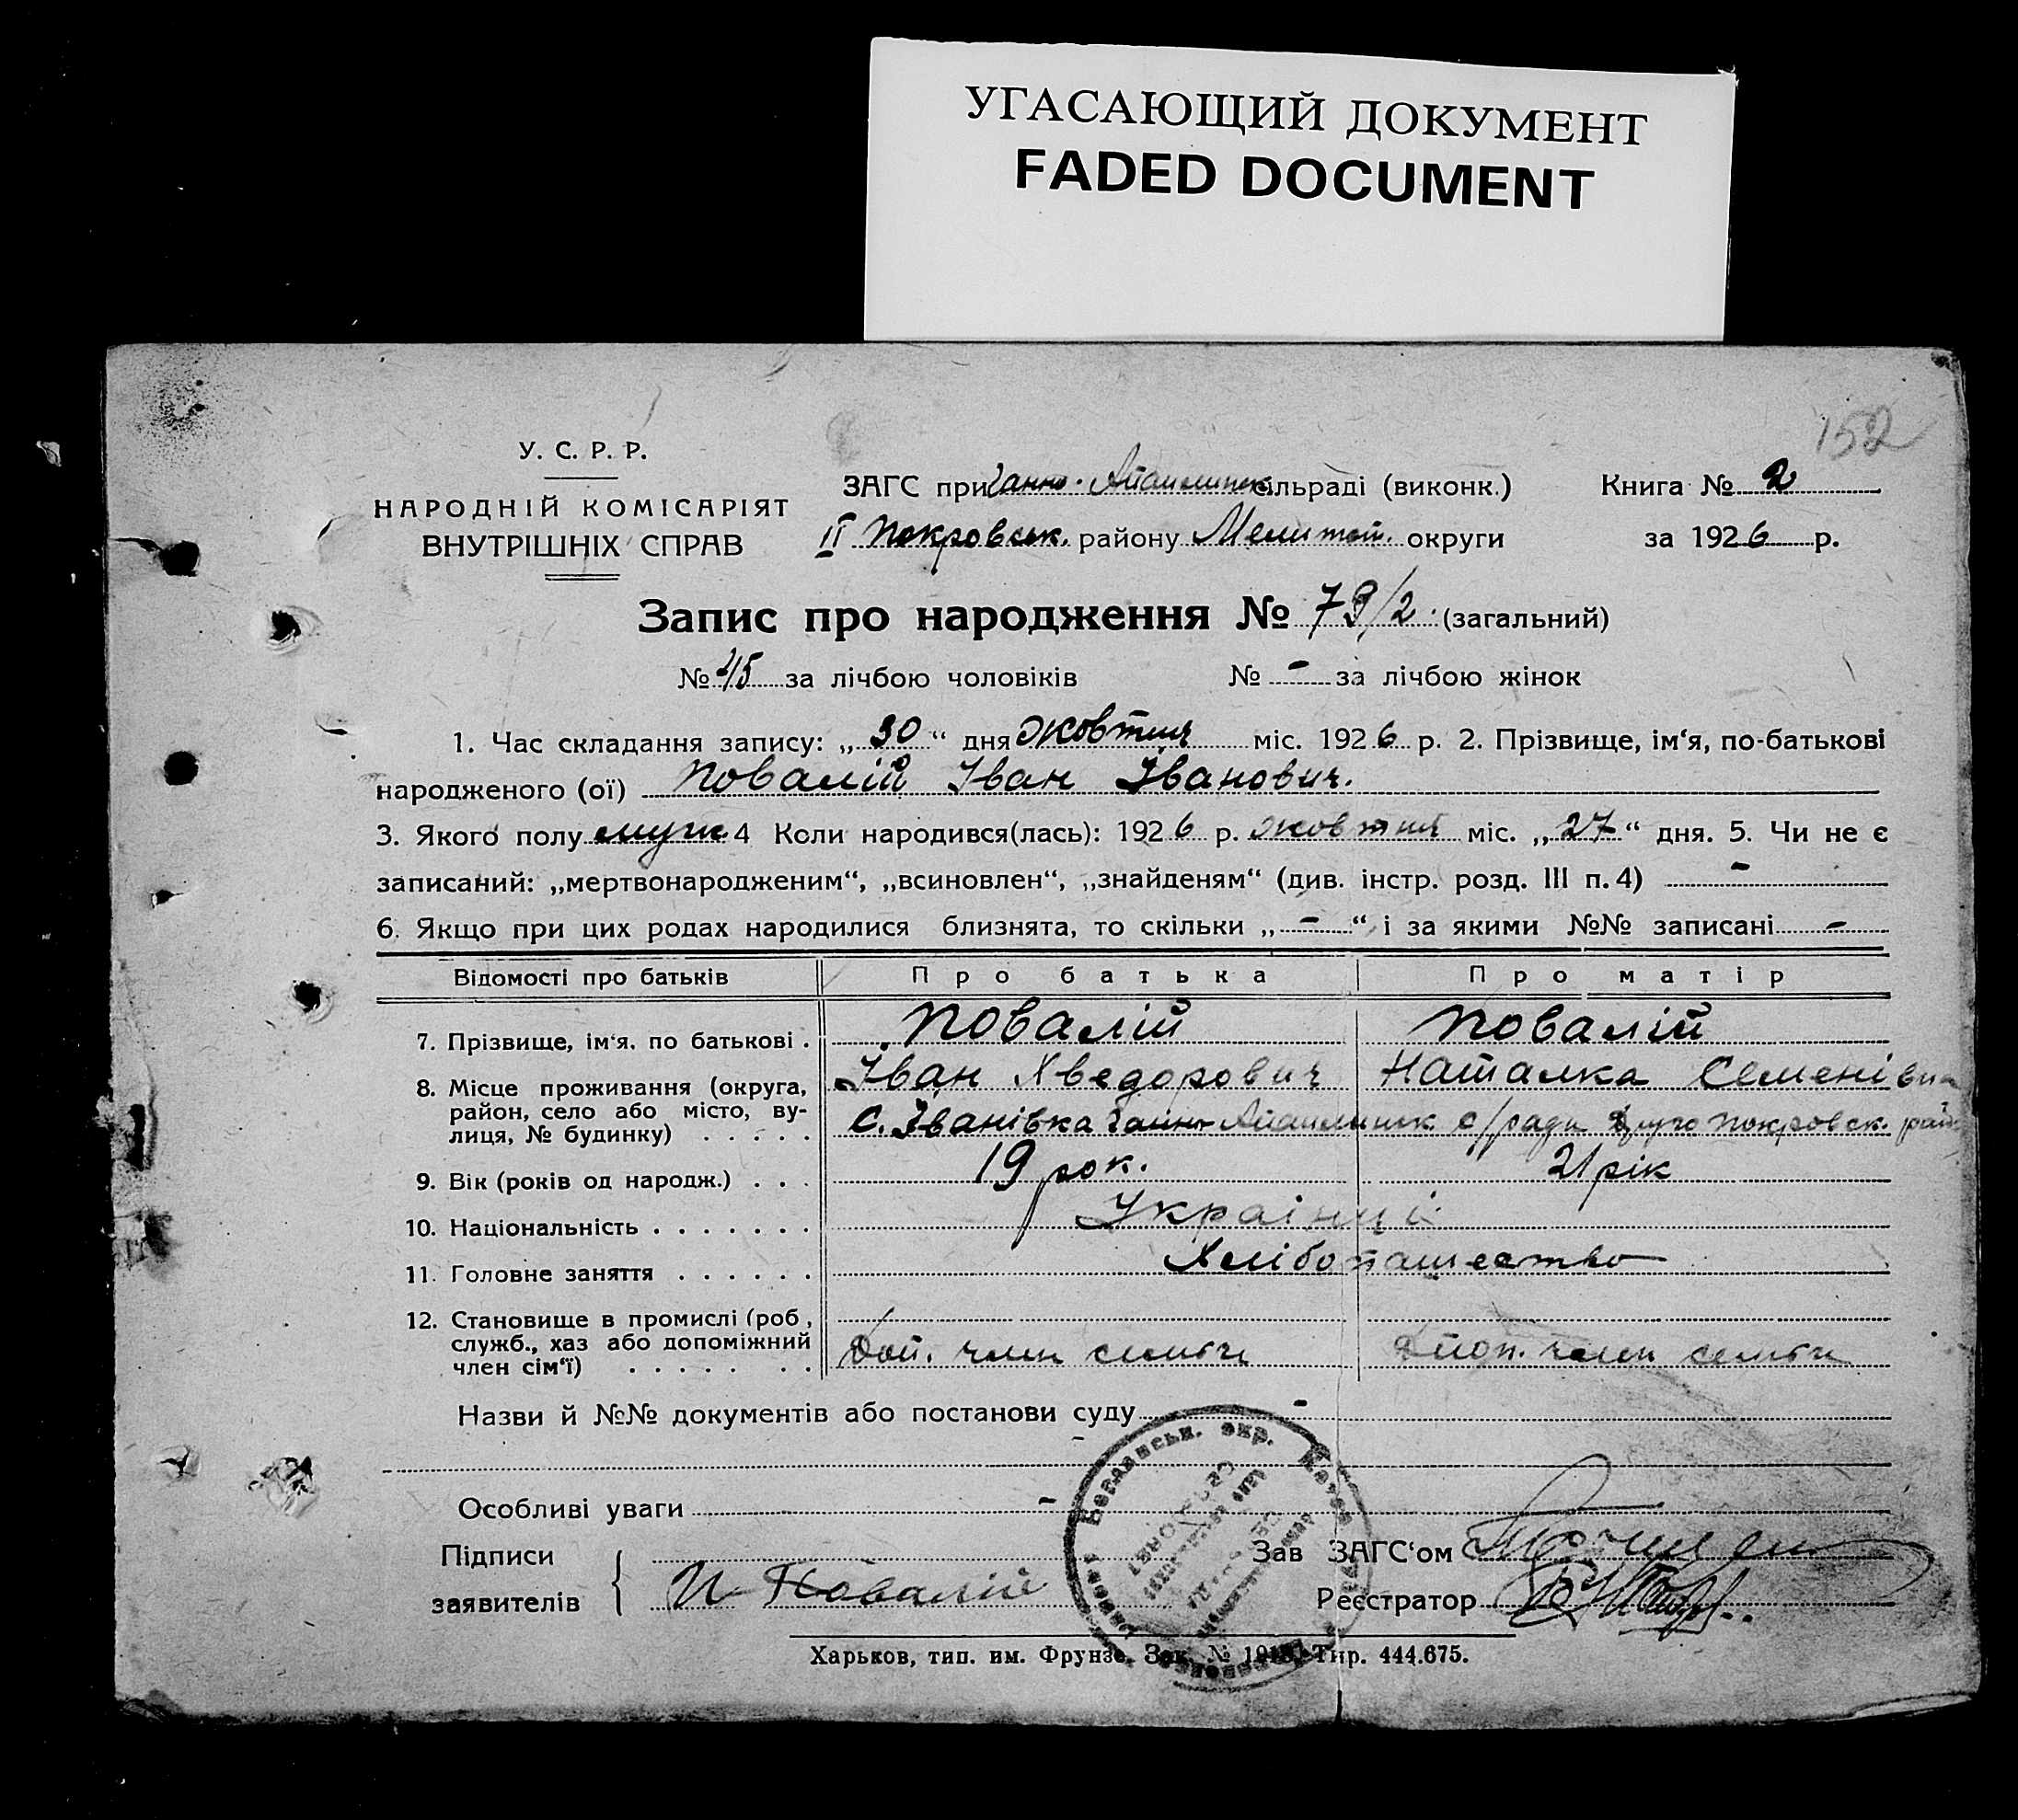 УГАСАЮЩИЙ ДОКУМЕНТ
FADED DOCUMENT
152
У. С. Р. Р.
НАРОДНІЙ КОМІСАРІЯТ
ВНУТРІШНІХ СПРАВ
ЗАГС при Ганно- сільраді (виконк.)
II Покровськ. району Мелитоп. округи
Книга № 2
за 1926 р.
Запис про народження № 79/2 (загальний)
№ 45 за лічбою чоловіків № - за лічбою жінок
1. Час складання запису: „30“ дня Жовтня міс. 1926 р. 2. Прізвище, ім‘я, по-батькові
народженого (ої) Повалій Іван Іванович.
3. Якого полу муж 4 Коли народився(лась): 1926 р. жовтня міс. „27“ дня. 5. Чи не є
записаний: „мертвонародженим“, „всиновлен“, „знайденям“ (див. інстр. розд. III п. 4) -
6. Якщо при цих родах народилися близнята, то скільки „-“ і за якими №№ записані -
Відомості про батьків Про батька Про матір
7. Прізвище, ім‘я, по батькові . Повалій Повалій
Іван Хведорович Наталка Семенівна
8. Місце проживання (округа,
район, село або місто, ву-
лиця, № будинку) . . . . . с. Іванівка Ганно- с/ради Друго Покровськ. рай
9. Вік (років од народж.) . . . 19 рок. 21 рік
10. Національність . . . . . . . Українці
11. Головне заняття . . . . . . Хлібопашество
12. Становище в промислі (роб,
служб., хаз або допоміжний
член сім‘ї) . . . . . . . Доп. член семьи член семьи
Назви й №№ документів або постанови суду -
Особливі уваги -
Підписи
заявителів И Повалій
Зав ЗАГС‘ом
Реєстратор
Харьков, тип. им. Фрунзе. Зак. № Тир. 444.675.